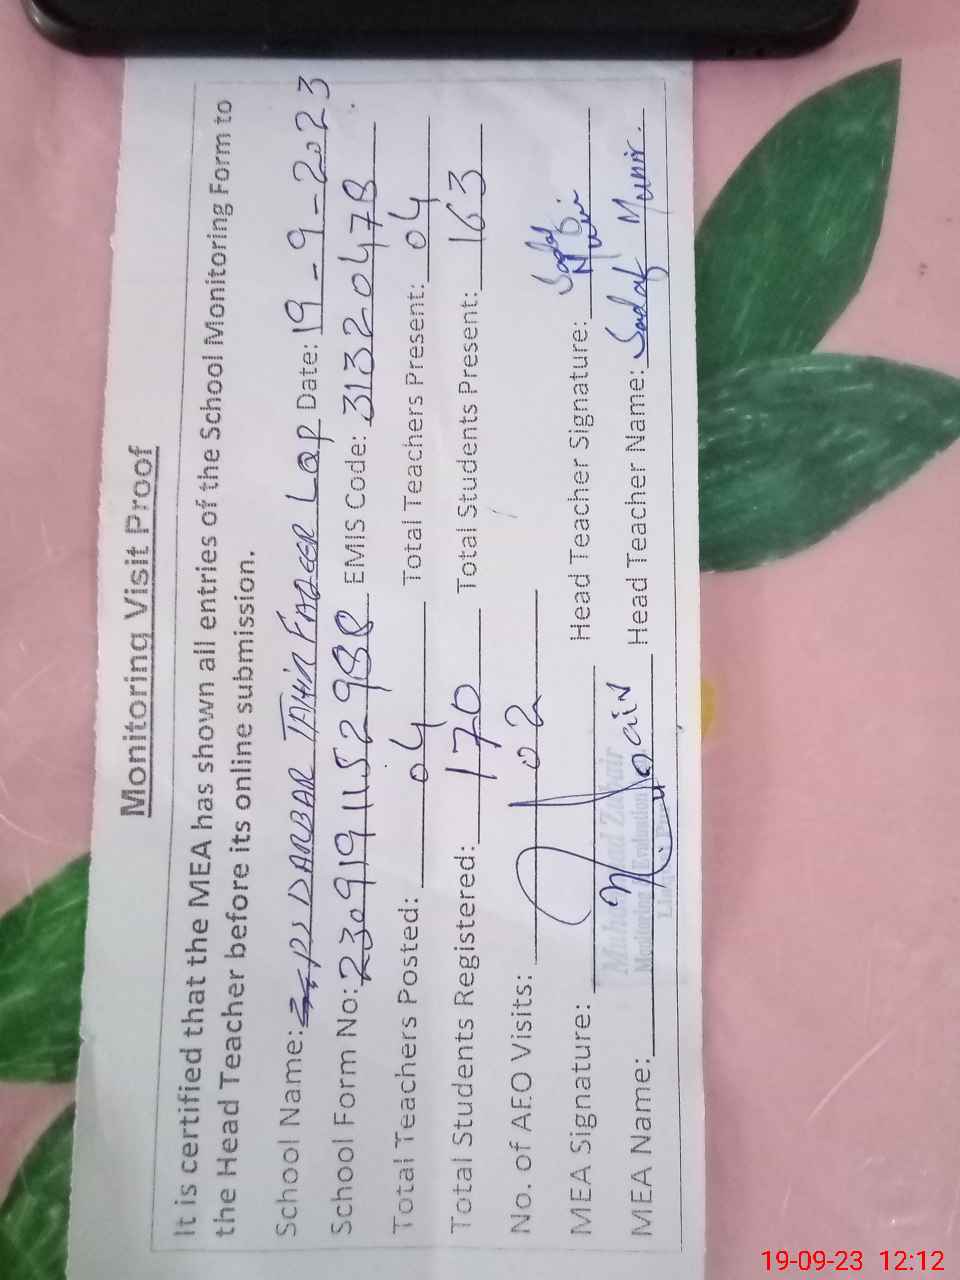 Monitoring Visit Proof
It is certified that the MEA has shown all entries of the School Monitoring Form to
the Head Teacher before its online submission.
School Name: DARBAR TAHIR FAQEER LQP Date: 19-9-2023
School Form No: 23091911152988 EMIS Code: 31320478
Total Teachers Posted: 04 Total Teachers Present: 04
Total Students Registered: 170 Total Students Present: 163
No. of AEO Visits: 02
MEA Signature: Head Teacher Signature: Sadaf Bi Munir
MEA Name: Head Teacher Name: Sadaf Munir.
Muhammad Zubair
Monitoring & Evaluation
19-09-23 12:12